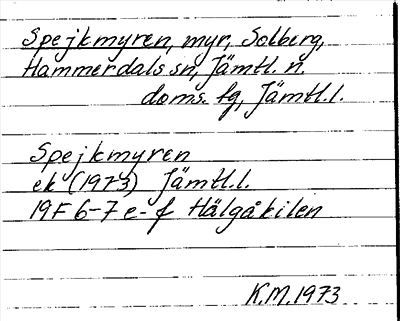 Spejkmyren, myr, Solberg,
Hammerdals sn, Jämtl. n.
doms. tg, Jämtl. l.
Spejkmyren
ek (1973) Jämtl. l.
19F 6-7 e-f Hälgåkilen
K.M. 1973